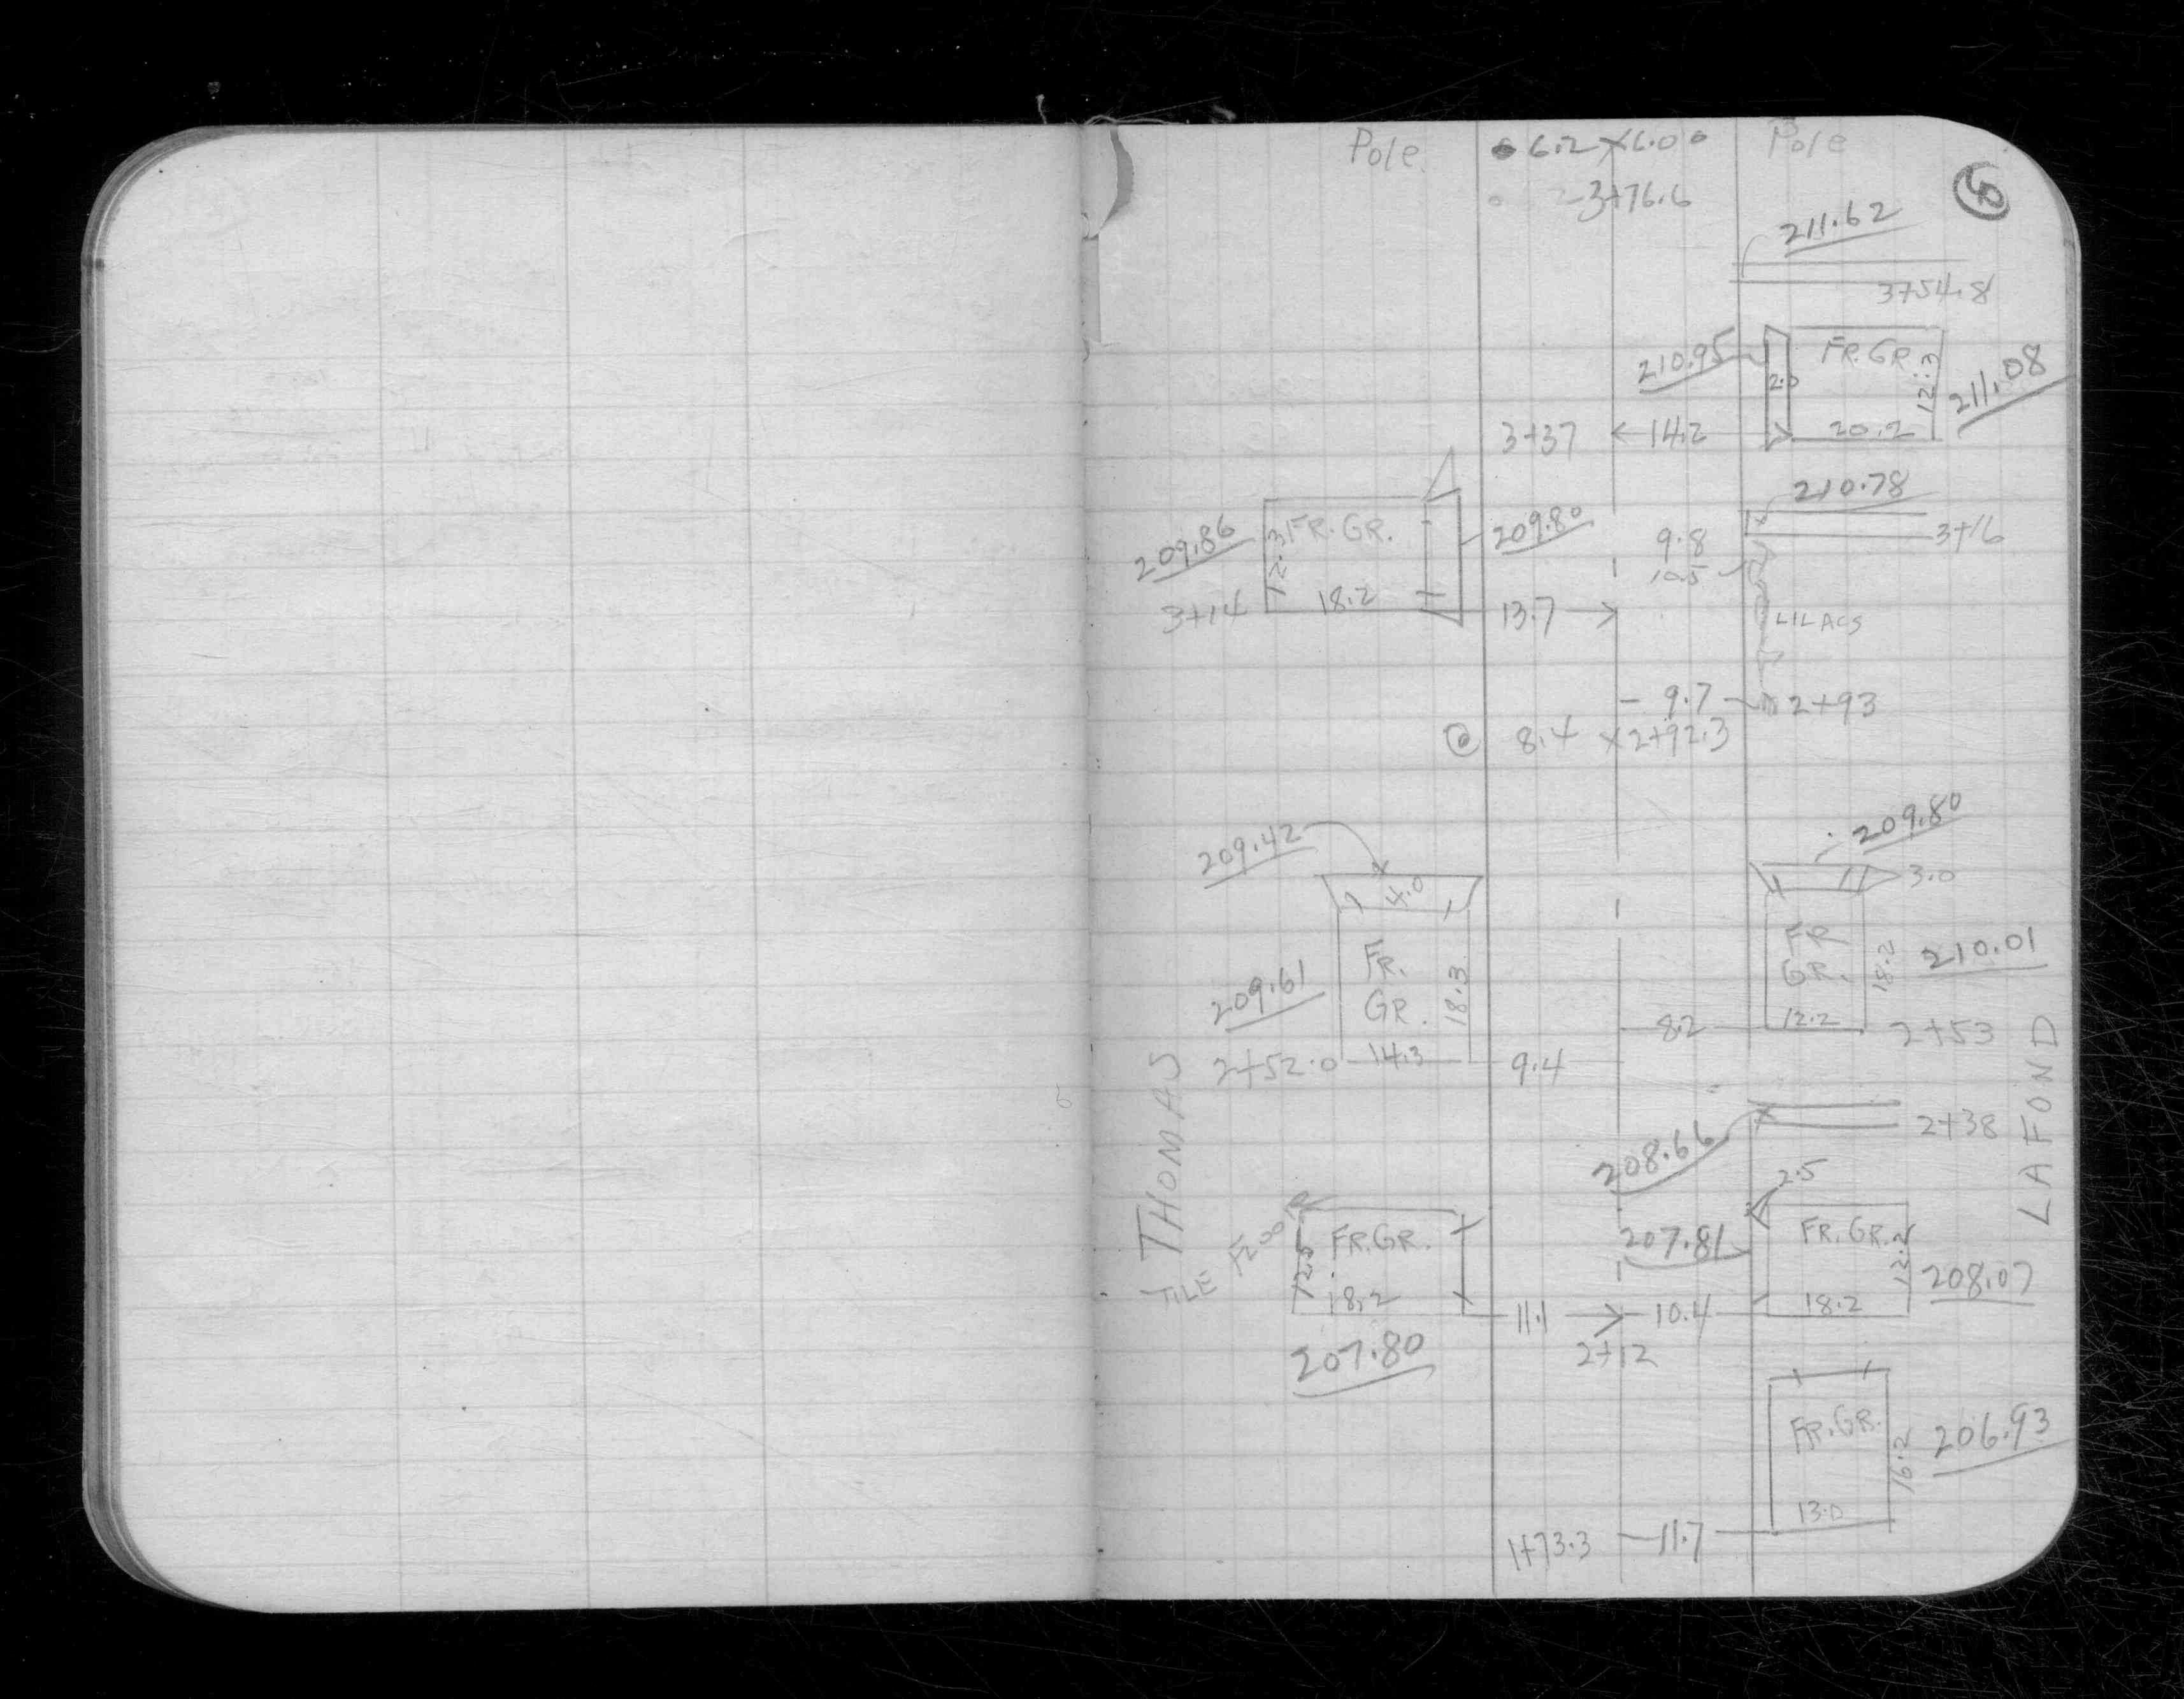 Pole 6.2 x 6.0 Pole
3+76.6
211.62
3+54.8
210.95 2.0 FR. GR. 12.3 211.08
3+37 14.2 20.2
210.78
209.86 12.3 FR. GR. 209.80 9.8 3+16
10.5
3+14 18.2 13.7 LILACS
9.7 2+93
8.4 x 2+92.3
209.80
209.42
4.0 3.0
FR. FR
209.61 GR. 18.3 GR. 18.2 210.01
8.2 12.2 2+53
2+52.0 14.3 9.4
THOMAS LAFOND
2+38
208.66
2.5
TILE FR. GR. 207.81 FR. GR. 12.2
12.5 18.2 208.07
11.1 10.4 18.2
207.80 2+12
FR. GR. 206.93
16.2
13.0
1+73.3 11.7